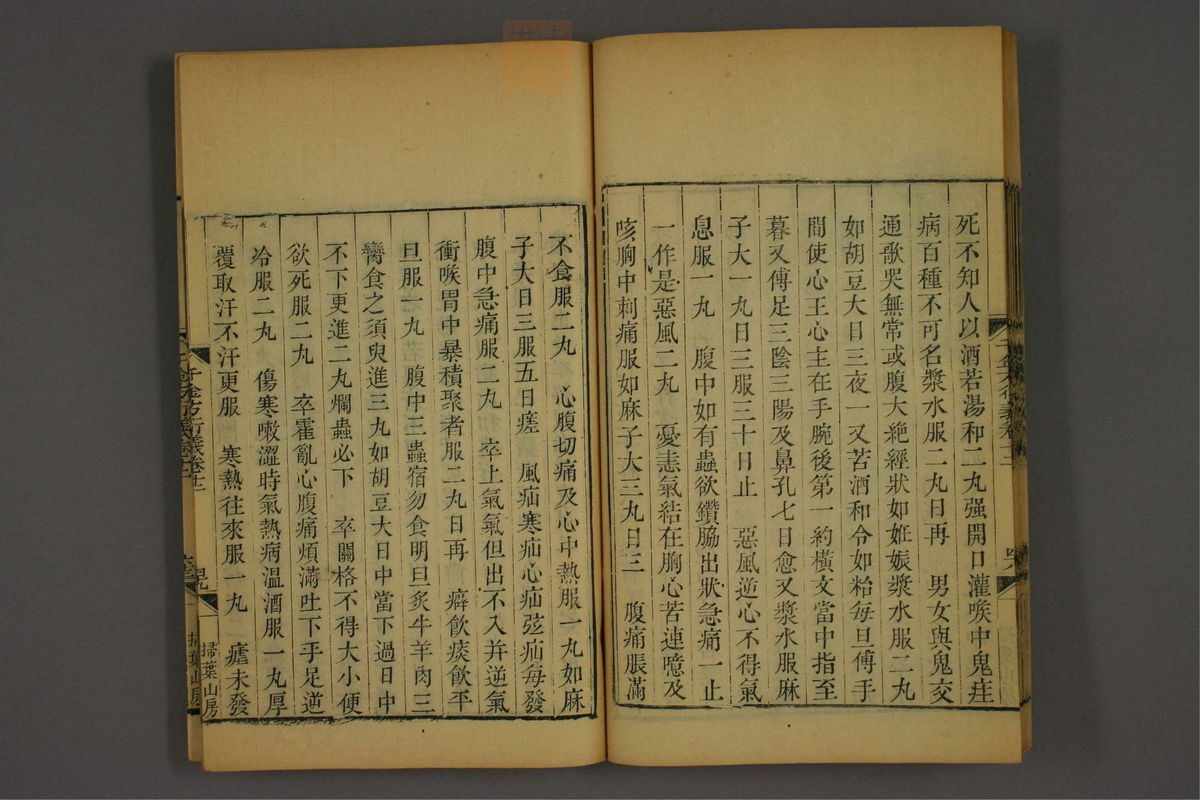 死不知人以酒若湯和二丸强開口灌喉中鬼疰
病百種不可名漿水服二丸日再　男女與鬼交
通歌哭無常或腹大絶經狀如姙娠漿水服二丸
如胡豆大日三夜一又苦酒和令如粭每旦傅手
間使心王心主在手腕後第一約橫文當中指至
暮又傅足三陰三陽及鼻孔七日愈又漿水服麻
子大一丸日三服三十日止　惡風逆心不得氣
息服一丸　腹中如有蟲欲鑽脇出狀急痛一止
一作是惡風二丸　憂恚氣結在胸心苦連噫及
咳胸中刺痛服如麻子大三丸日三　腹痛脹滿
不食服二丸　心腹切痛及心中熱服一丸如麻
子大日三服五日瘥　風疝寒疝心疝弦疝每發
腹中急痛服二丸　卒上氣氣但出不入并逆氣
衝喉胃中暴積聚者服二丸日再　癖飮痰飮平
旦服一丸　腹中三蟲宿勿食明旦炙牛羊肉三
臠食之須臾進三丸如胡豆大日中當下過日中
不下更進二丸爛蟲必下　卒關格不得大小便
欲死服二丸　卒霍亂心腹痛煩滿吐下手足逆
冷服二丸　傷寒嗽澀時氣熱病溫酒服一丸厚
覆取汗不汗更服　寒熱往來服一丸　瘧未發
千金方衍義卷十二
掃葉山房